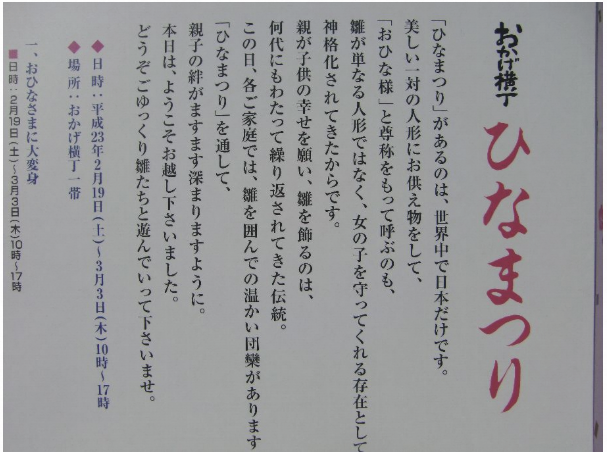 おかげ横丁
ひなまつり
「ひなまつり」があるのは、世界中で日本だけです。
美しい一対の人形にお供え物をして、
「おひな様」と尊称をもって呼ぶのも、
雛が単なる人形ではなく、女の子を守ってくれる存在として
神格化されてきたからです。
親が子供の幸せを願い、雛を飾るのは、
何代にもわたって繰り返されてきた伝統。
この日、各ご家庭では、雛を囲んでの温かい団欒があります
「ひなまつり」を通して、
親子の絆がますます深まりますように。
本日は、ようこそお越し下さいました。
どうぞごゆっくり雛たちと遊んでいって下さいませ。
◆日時:平成23年2月19日(土)〜3月3日(木)10時〜17時
◆場所:おかげ横丁一帯
一、おひなさまに大変身
■日時:2月19日(土)〜3月3日(木)10時〜17時